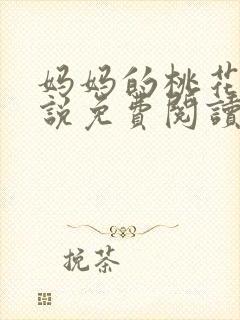 妈妈的桃花
說免費閱讀
挽茶